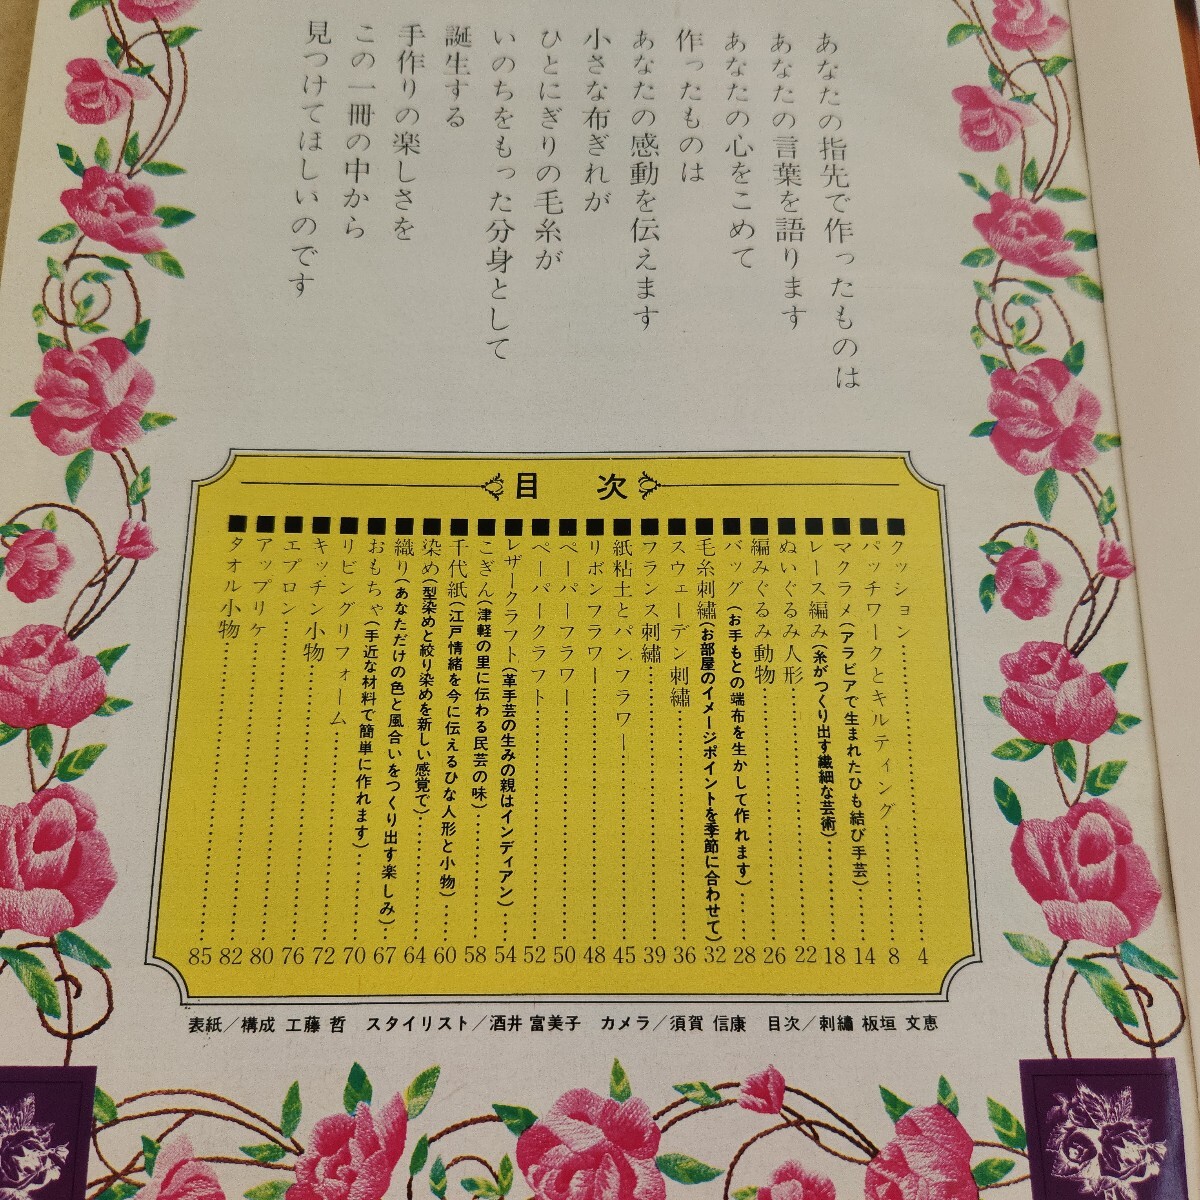 あなたの指先で作ったものは
あなたの言葉を語ります
あなたの心をこめて
作ったものは
あなたの感動を伝えます
小さな布ぎれが
ひとにぎりの毛糸が
いのちをもった分身として
誕生する
手作りの楽しさを
この一冊の中から
見つけてほしいのです
目次
■クッション……4
■パッチワークとキルティング……8
■マクラメ(アラビアで生まれたひも結び手芸)……14
■レース編み(糸がつくり出す繊細な芸術)……18
■ぬいぐるみ人形……22
■編みぐるみ動物……26
■バッグ(お手もとの端布を生かして作れます)……28
■毛糸刺繡(お部屋のイメージポイントを季節に合わせて)……32
■スウェーデン刺繡……36
■フランス刺繡……39
■紙粘土とパンフラワー……45
■リボンフラワー……48
■ペーパーフラワー……50
■ペーパークラフト……52
■レザークラフト(革手芸の生みの親はインディアン)……54
■こぎん(津軽の里に伝わる民芸の味)……58
■千代紙(江戸情緒を今に伝えるひな人形と小物)……60
■染め(型染めと絞り染めを新しい感覚で)……64
■織り(あなただけの色と風合いをつくり出す楽しみ)……67
■おもちゃ(手近な材料で簡単に作れます)……70
■リビングリフォーム……72
■キッチン小物……76
■エプロン……80
■アップリケ……82
■タオル小物……85
表紙/構成 工藤 哲 スタイリスト/酒井 富美子 カメラ/須賀 信康 目次/刺繡 板垣 文恵